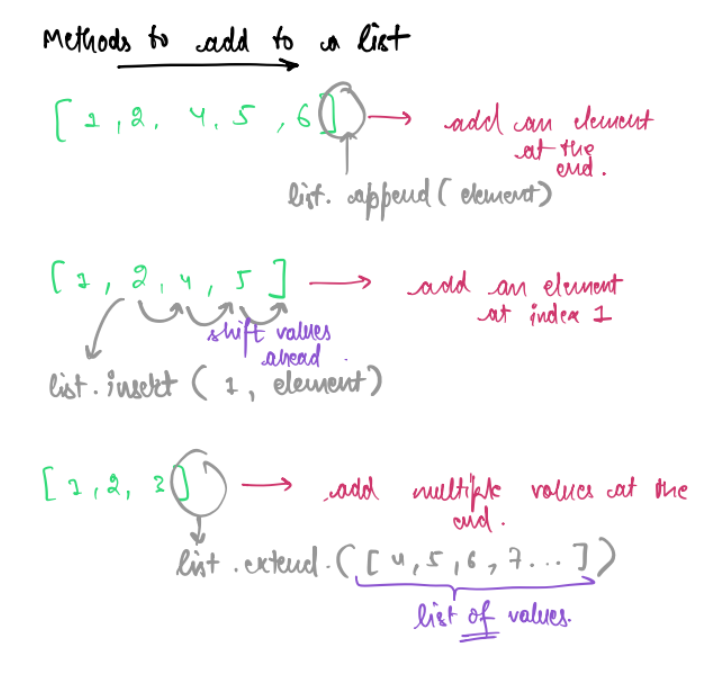 Methods to add to a list
[ 1 , 2 , 4 , 5 , 6 ] → add an element
at the
end .
list . append ( element )
[ 1 , 2 , 4 , 5 ] → add an element
at index 1
shift values
ahead
list . insert ( 1 , element )
[ 1 , 2 , 3 ] → add multiple values at the
end .
list . extend . ( [ 4 , 5 , 6 , 7 ... ] )
list of values .